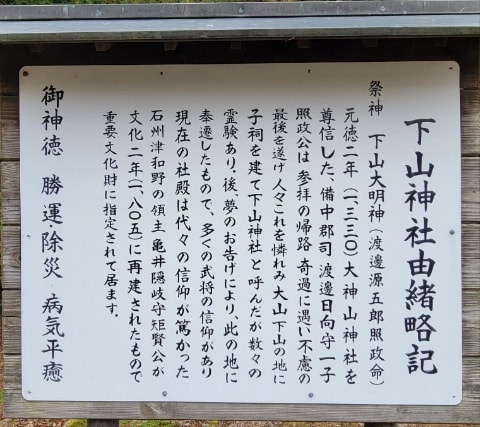 下山神社由緒略記
祭神 下山大明神(渡邊源五郎照政命)
元徳二年(一、三三〇)大神山神社を
尊信した、備中郡司渡邊日向守一子
照政公は参拝の帰路奇過に遇い不慮の
最後を遂げ人々これを憐れみ大山下山の地に
子祠を建て下山神社と呼んだが数々の
霊験あり。後、夢のお告げにより、此の地に
奉遷したもので、多くの武将の信仰があり
現在の社殿は代々の信仰が篤かった
石州津和野の領主亀井隠岐守矩賢公が
文化二年(一、八〇五)に再建されたもので
重要文化財に指定されて居ます。
御神徳 勝運・除災 病気平癒